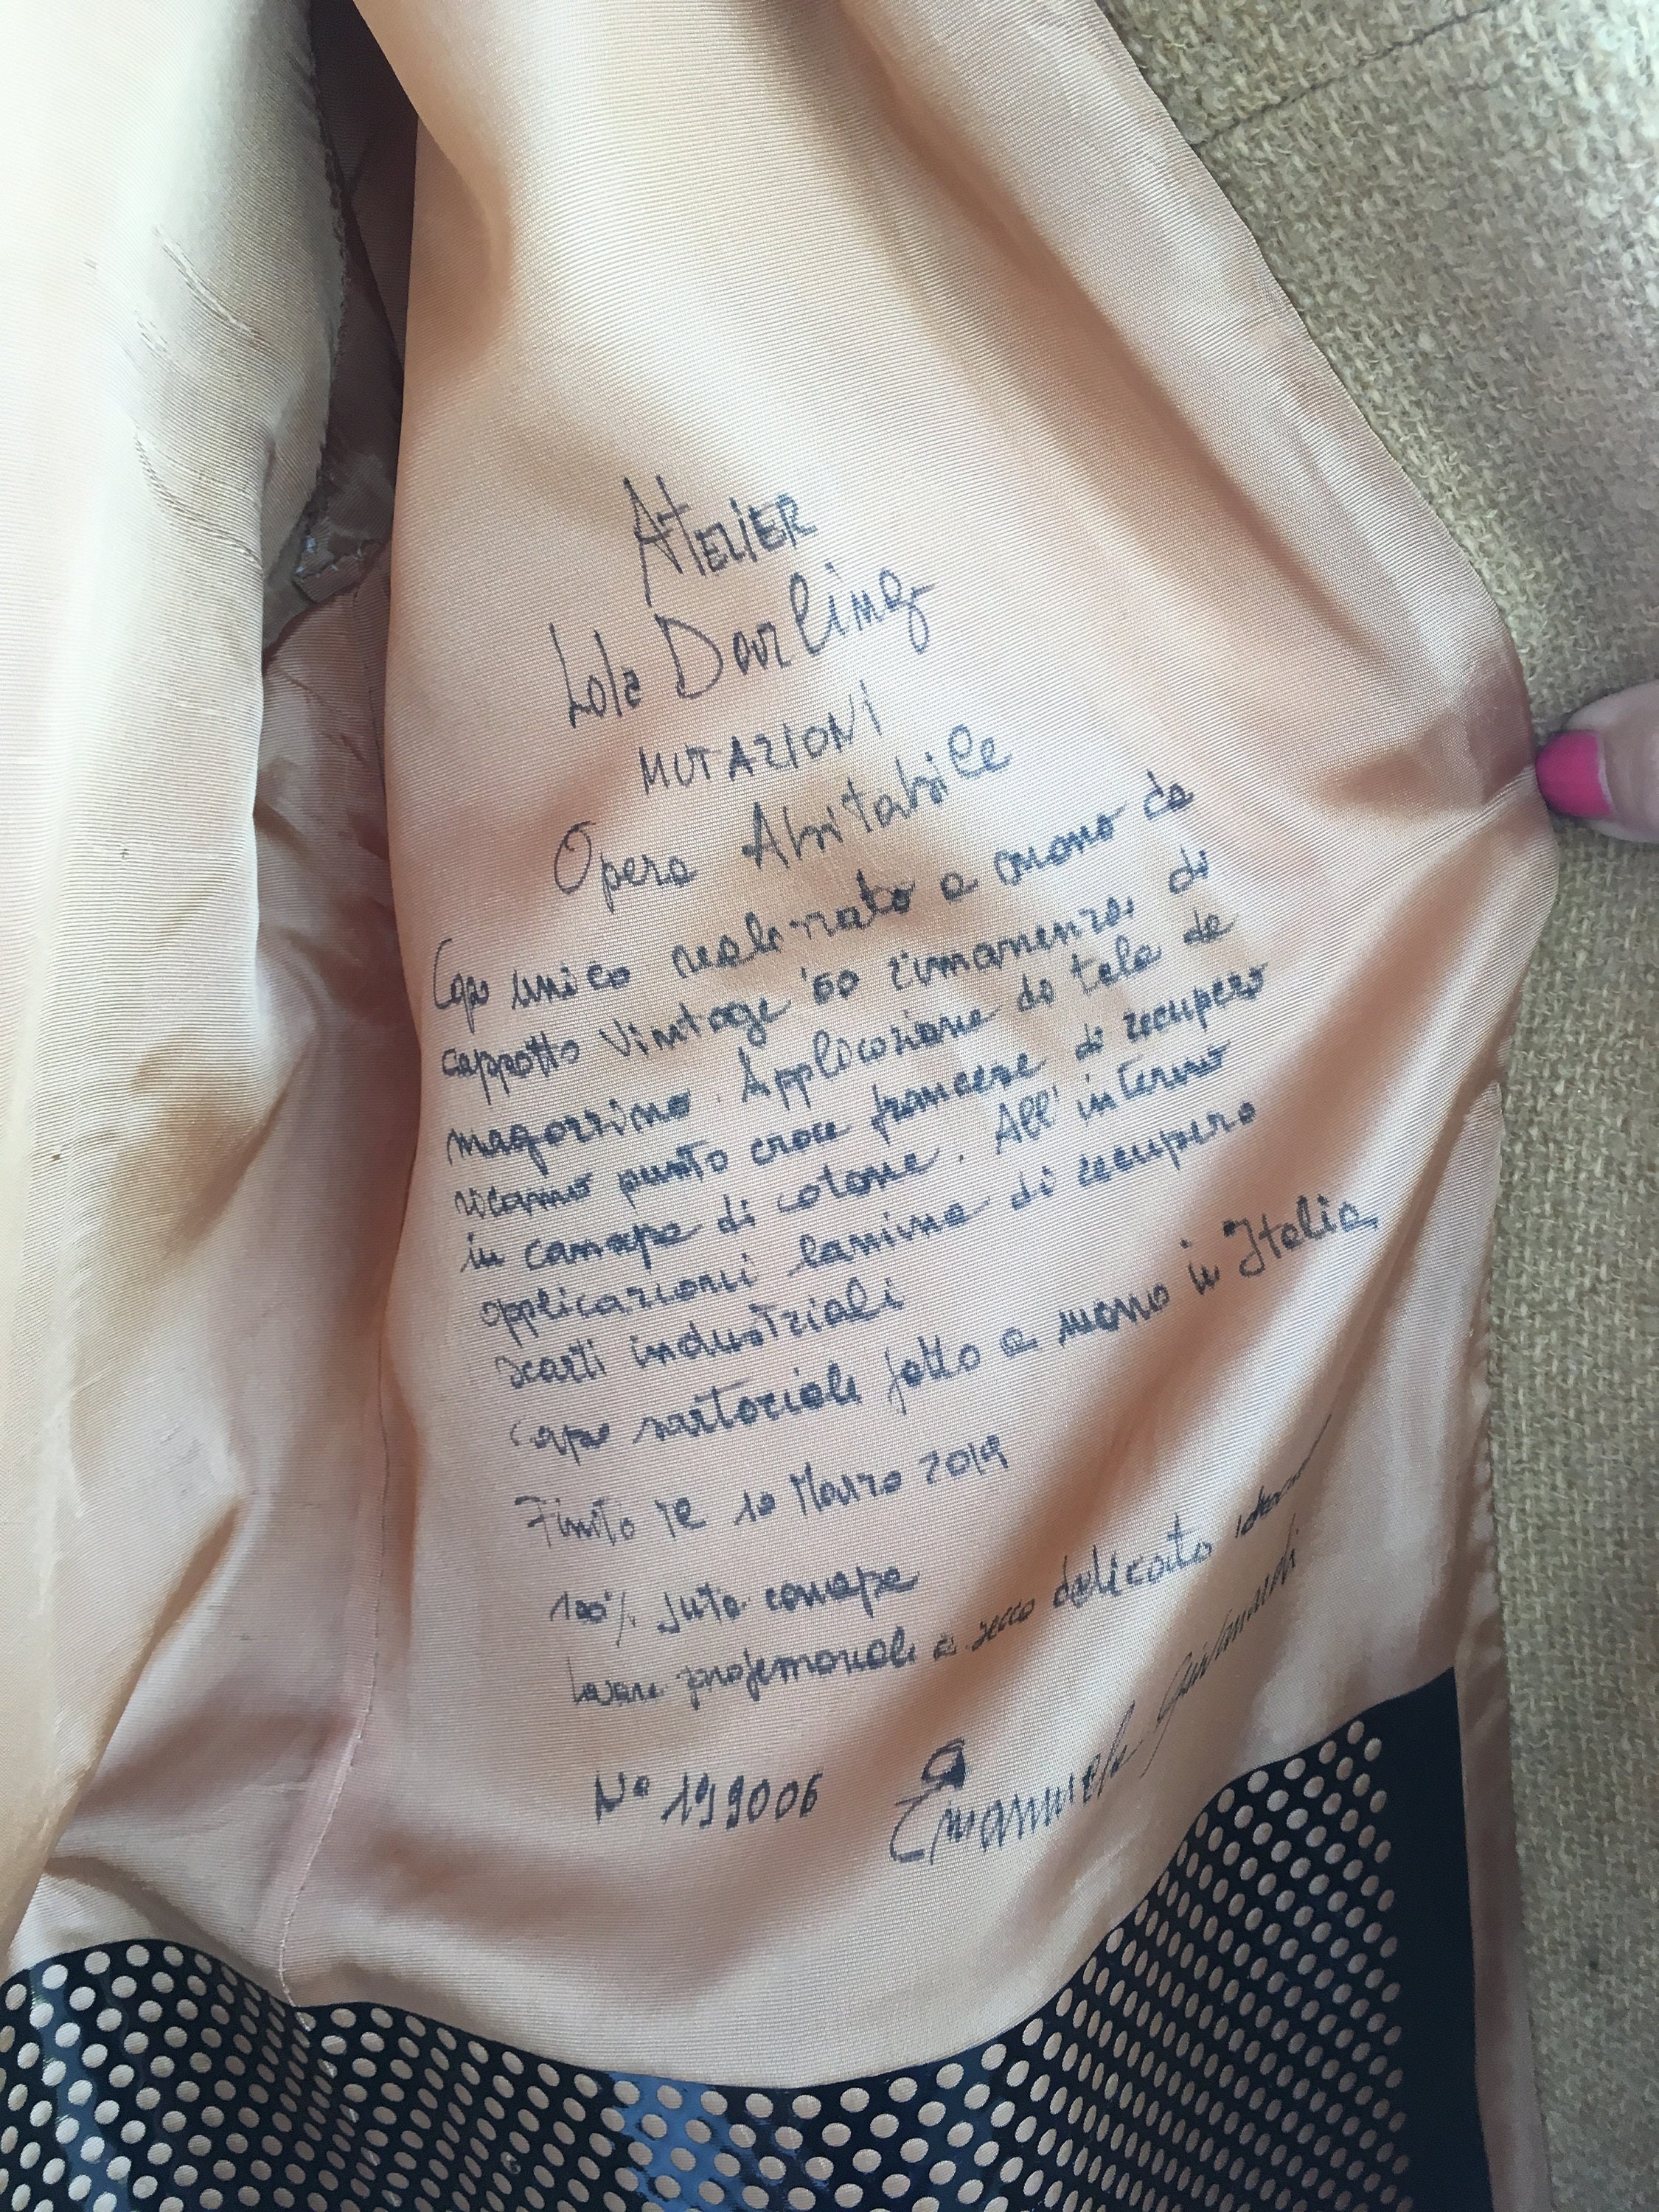 ATELIER
Lola Darling
MUTAZIONI
Opera Abitabile
Capo unico realizzato a mano da
cappotto Vintage '60 rimanenza di
magazzino. Applicazione da tela da
ricamo punto croce francese di recupero
in canapa di cotone. All'interno
applicazioni lamina di recupero
scarti industriali
Capo sartoriale fatto a mano in Italia
Finito il 10 Marzo 2019
100% Juta canapa
Lavare professionale a secco delicato
N° 199006
Emanuela